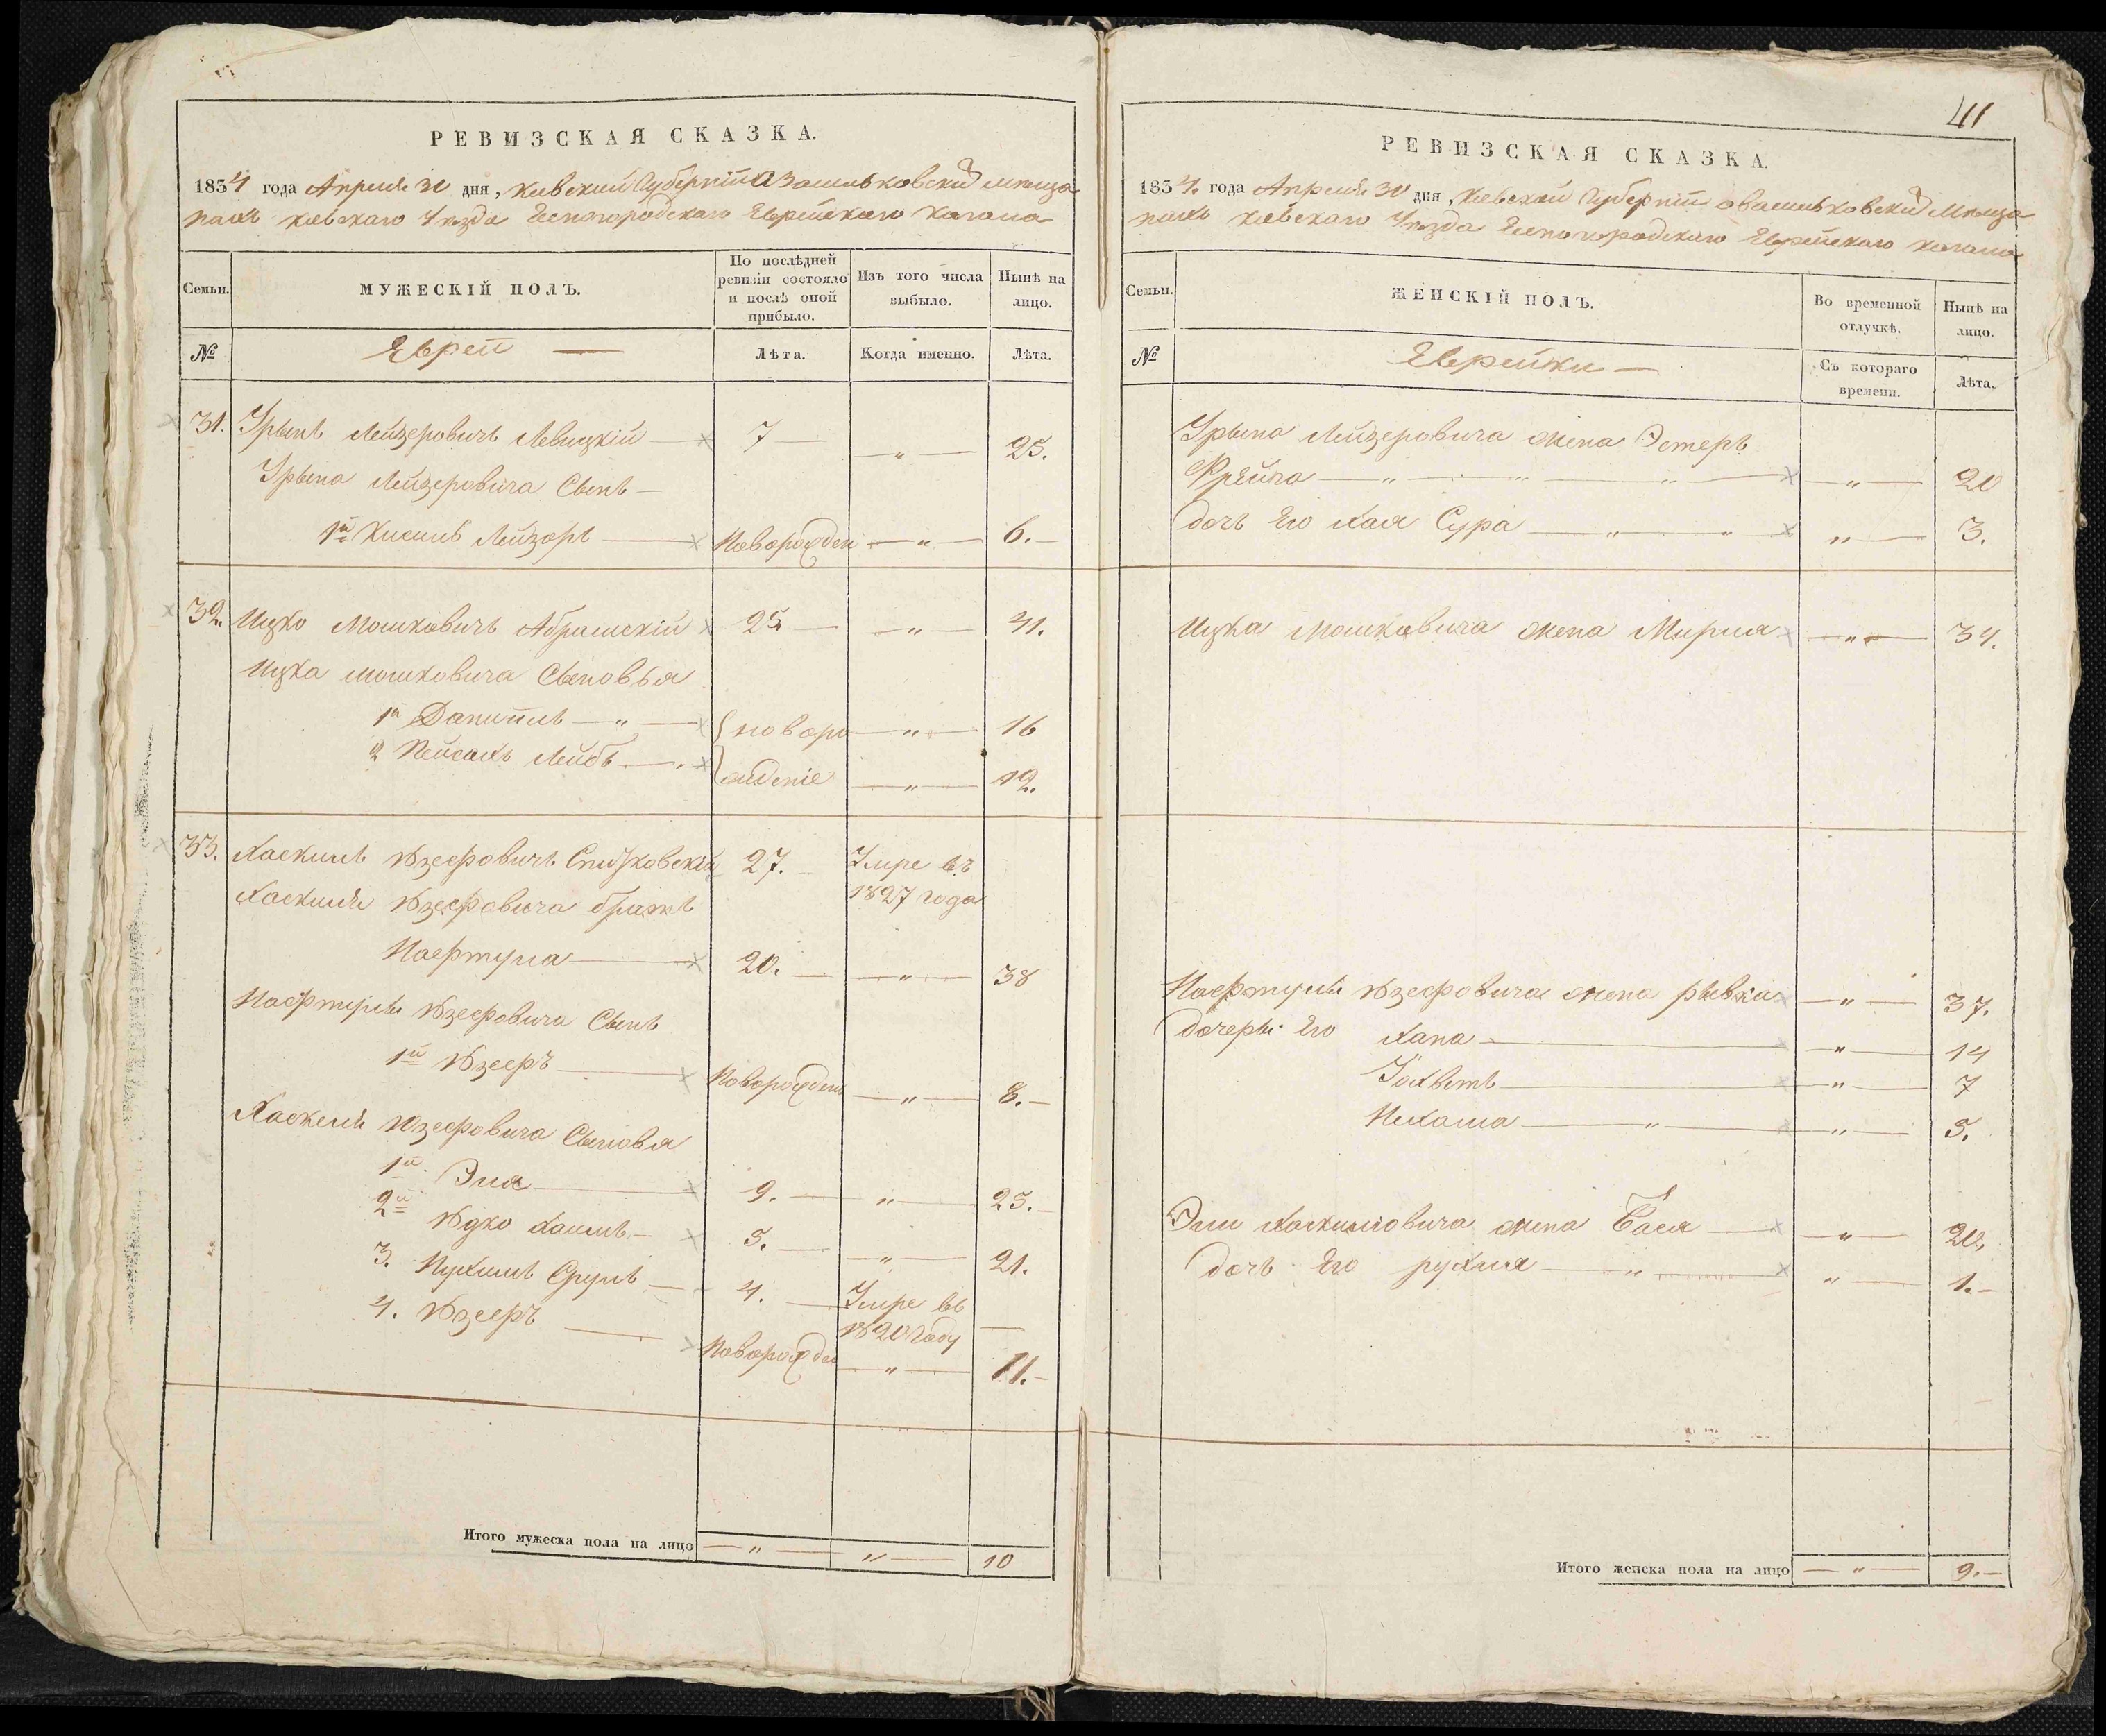 РЕВИЗСКАЯ СКАЗКА.
1834 года Апреля 30 дня, Киевской Губернiи О Васильковский мѣща
нахъ Киевскаго Уѣзда Бѣлогородскаго Еврейскаго Кагала
Семьи.
МУЖЕСКІЙ ПОЛЪ.
По послѣдней ревизіи состояло и послѣ оной прибыло.
Изъ того числа выбыло.
Нынѣ на лицо.
№
Евреи —
Лѣта.
Когда именно.
Лѣта.
31. Лейзеровичъ Левицкій — 7 — „ — 25.
Лейзеровича Сынъ —
1й Лейзоръ — Новорожден — „ — 6. —
32. Ицко Мошковичъ Абрамскій 25 — „ — 41.
Ицка Мошковича Сыновья
1й Данiилъ — „ — { новоро — „ — 16
2 Пейсахъ Лейбъ — { жденіе — „ — 12.
33. Хаскиль Юзефовичъ 27. Умре въ
1827 года
Хаскиля Юзефовича братъ
Нафтула — 20. — „ — 38
Нафтулы Юзефовича Сынъ
1й Юзефъ — Новорожденъ — „ — 8. —
Хаскеля Юзефовича Сыновья
1й Эля — 9. — „ — 25. —
2й Юдко Хаимъ — 5. — „ — 21.
3. Нухимъ Срулъ — 4. — Умре въ
1820 Году —
4. Юзефъ — Новорожден — „ — 11. —
Итого мужеска пола на лицо — „ — „ — 10
41
РЕВИЗСКАЯ СКАЗКА.
1834. года Апреля 30 дня, Киевской Губернiи о Васильковский Мѣща
нахъ Киевскаго Уѣзда Бѣлогородскаго Еврейскаго Кагала
Семьи.
ЖЕНСКІЙ ПОЛЪ.
Во временной отлучкѣ.
Нынѣ на лицо.
№
Еврейки —
Съ котораго времени.
Лѣта.
Лейзеровича жена Эстеръ
Фрейга — „ — „ — „ — „ — 20
дочь Его Хая Сура — „ — „ — „ — 3.
Ицка Мошковича жена Мирля — „ — 34.
Нафтулы Юзефовича жена рывка — „ — 37.
дочеры Его Хана — „ — 14
Іохветъ — „ — 7
Нехама — „ — „ — 5.
Эли Хаскилловича жена Бася — „ — 20,
дочь Его рухля — „ — „ — 1. —
Итого женска пола на лицо — „ — 9. —